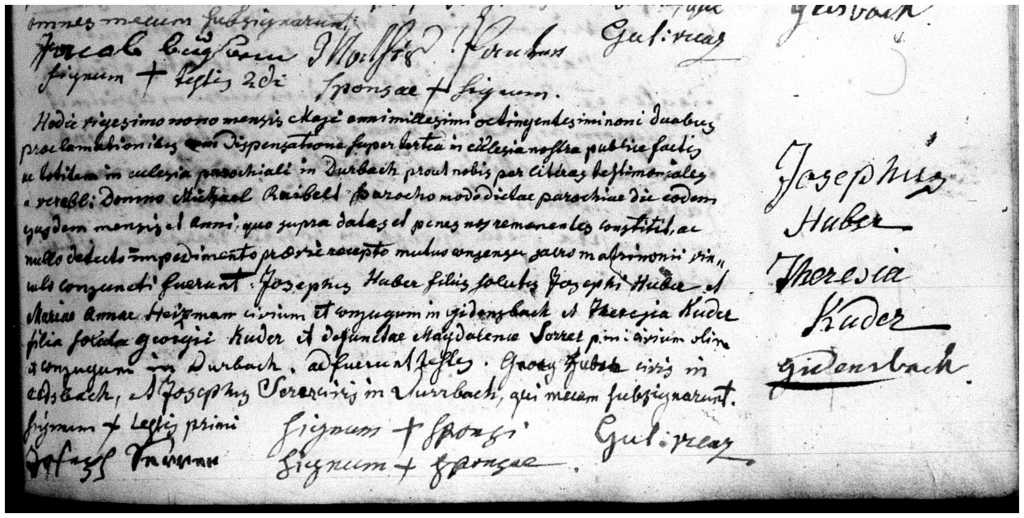 omnes mecum subsignarunt:
Guti: vicar
Gisbach.
Jacob
signum + testis 2di
sponsae + signum.
Hodie vigesimo nono mensis Maji anni millesimi octingentesimi noni duabus
proclamationibus dispensatione super tertia in ecclesia nostra publice factis
ac totidem in ecclesia parochiali in Durbach prout nobis per litteras testimoniales
a verebl: Domino Michael Raibell parocho modo dictae parochiae die eodem
ejusdem mensis et anni, quo supra datas et penes nos remanentes constitit, ac
nullo detecto impedimento praevie recepto mutuo consensu sacro matrimonii vin„
culo conjuncti fuerunt. Josephus Huber filius solutus Josephi Huber et
Mariae Annae Heizmam civium et conjugum in gidensbach et Theresia Kuder
filia soluta georgii Kuder et defunctae Magdalenae Sorrer p.m: civium olim
et conjugum in Durbach. adfuerunt testes. Georg Huber civis in
, et Josephus civis in Durrbach, qui mecum subsignarunt.
signum + testis primi
signum + sponsi
Guti: vicar
Joseph
signum + sponsae.
Josephus
Huber
Theresia
Kuder
gidensbach.